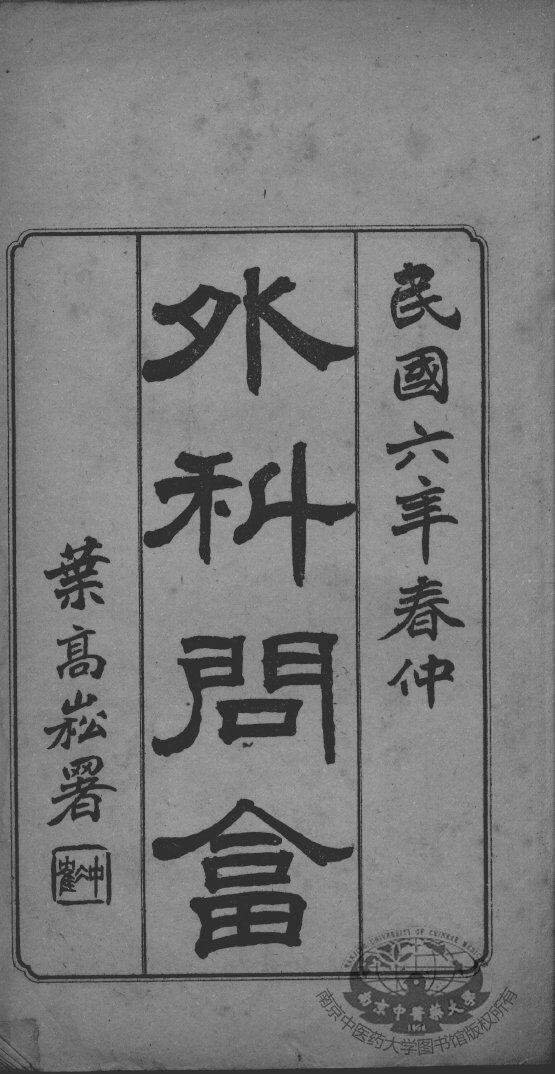 民國六年春仲
外科問畣
葉高崧署
NANJING UNIVERSITY OF CHINESE MEDICINE
南京中醫藥大學
1954
南京中医药大学图书馆版权所有